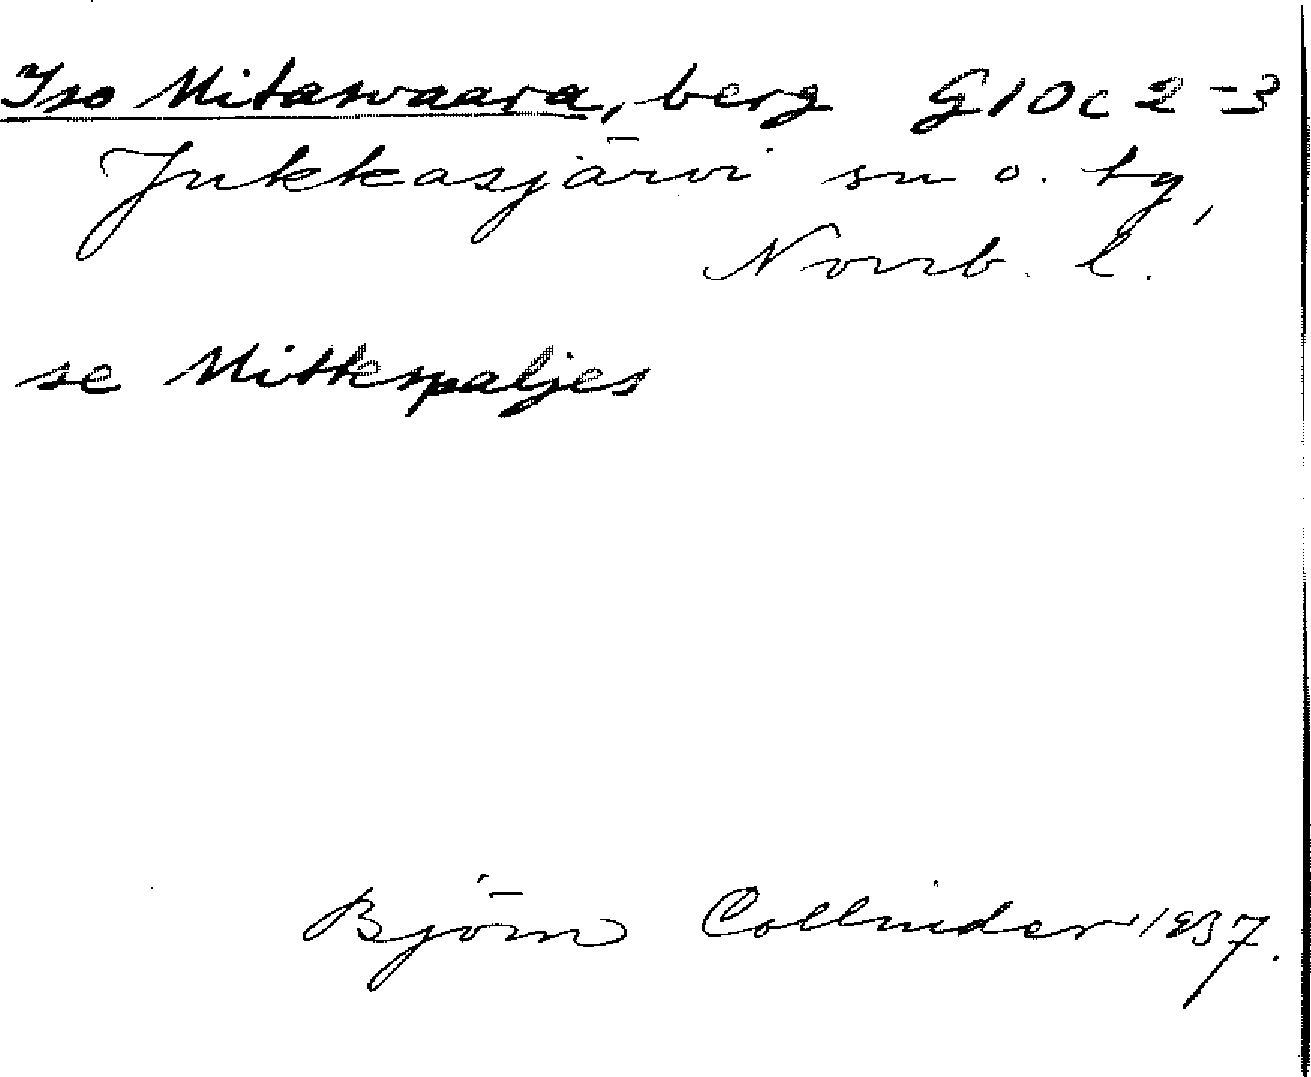 Iso Mitaswaara, berg G10c2-3
Jukkasjärvi sn o. tg,
Norrb. l.
se Mittespaljes
Björn Collinder 1937.